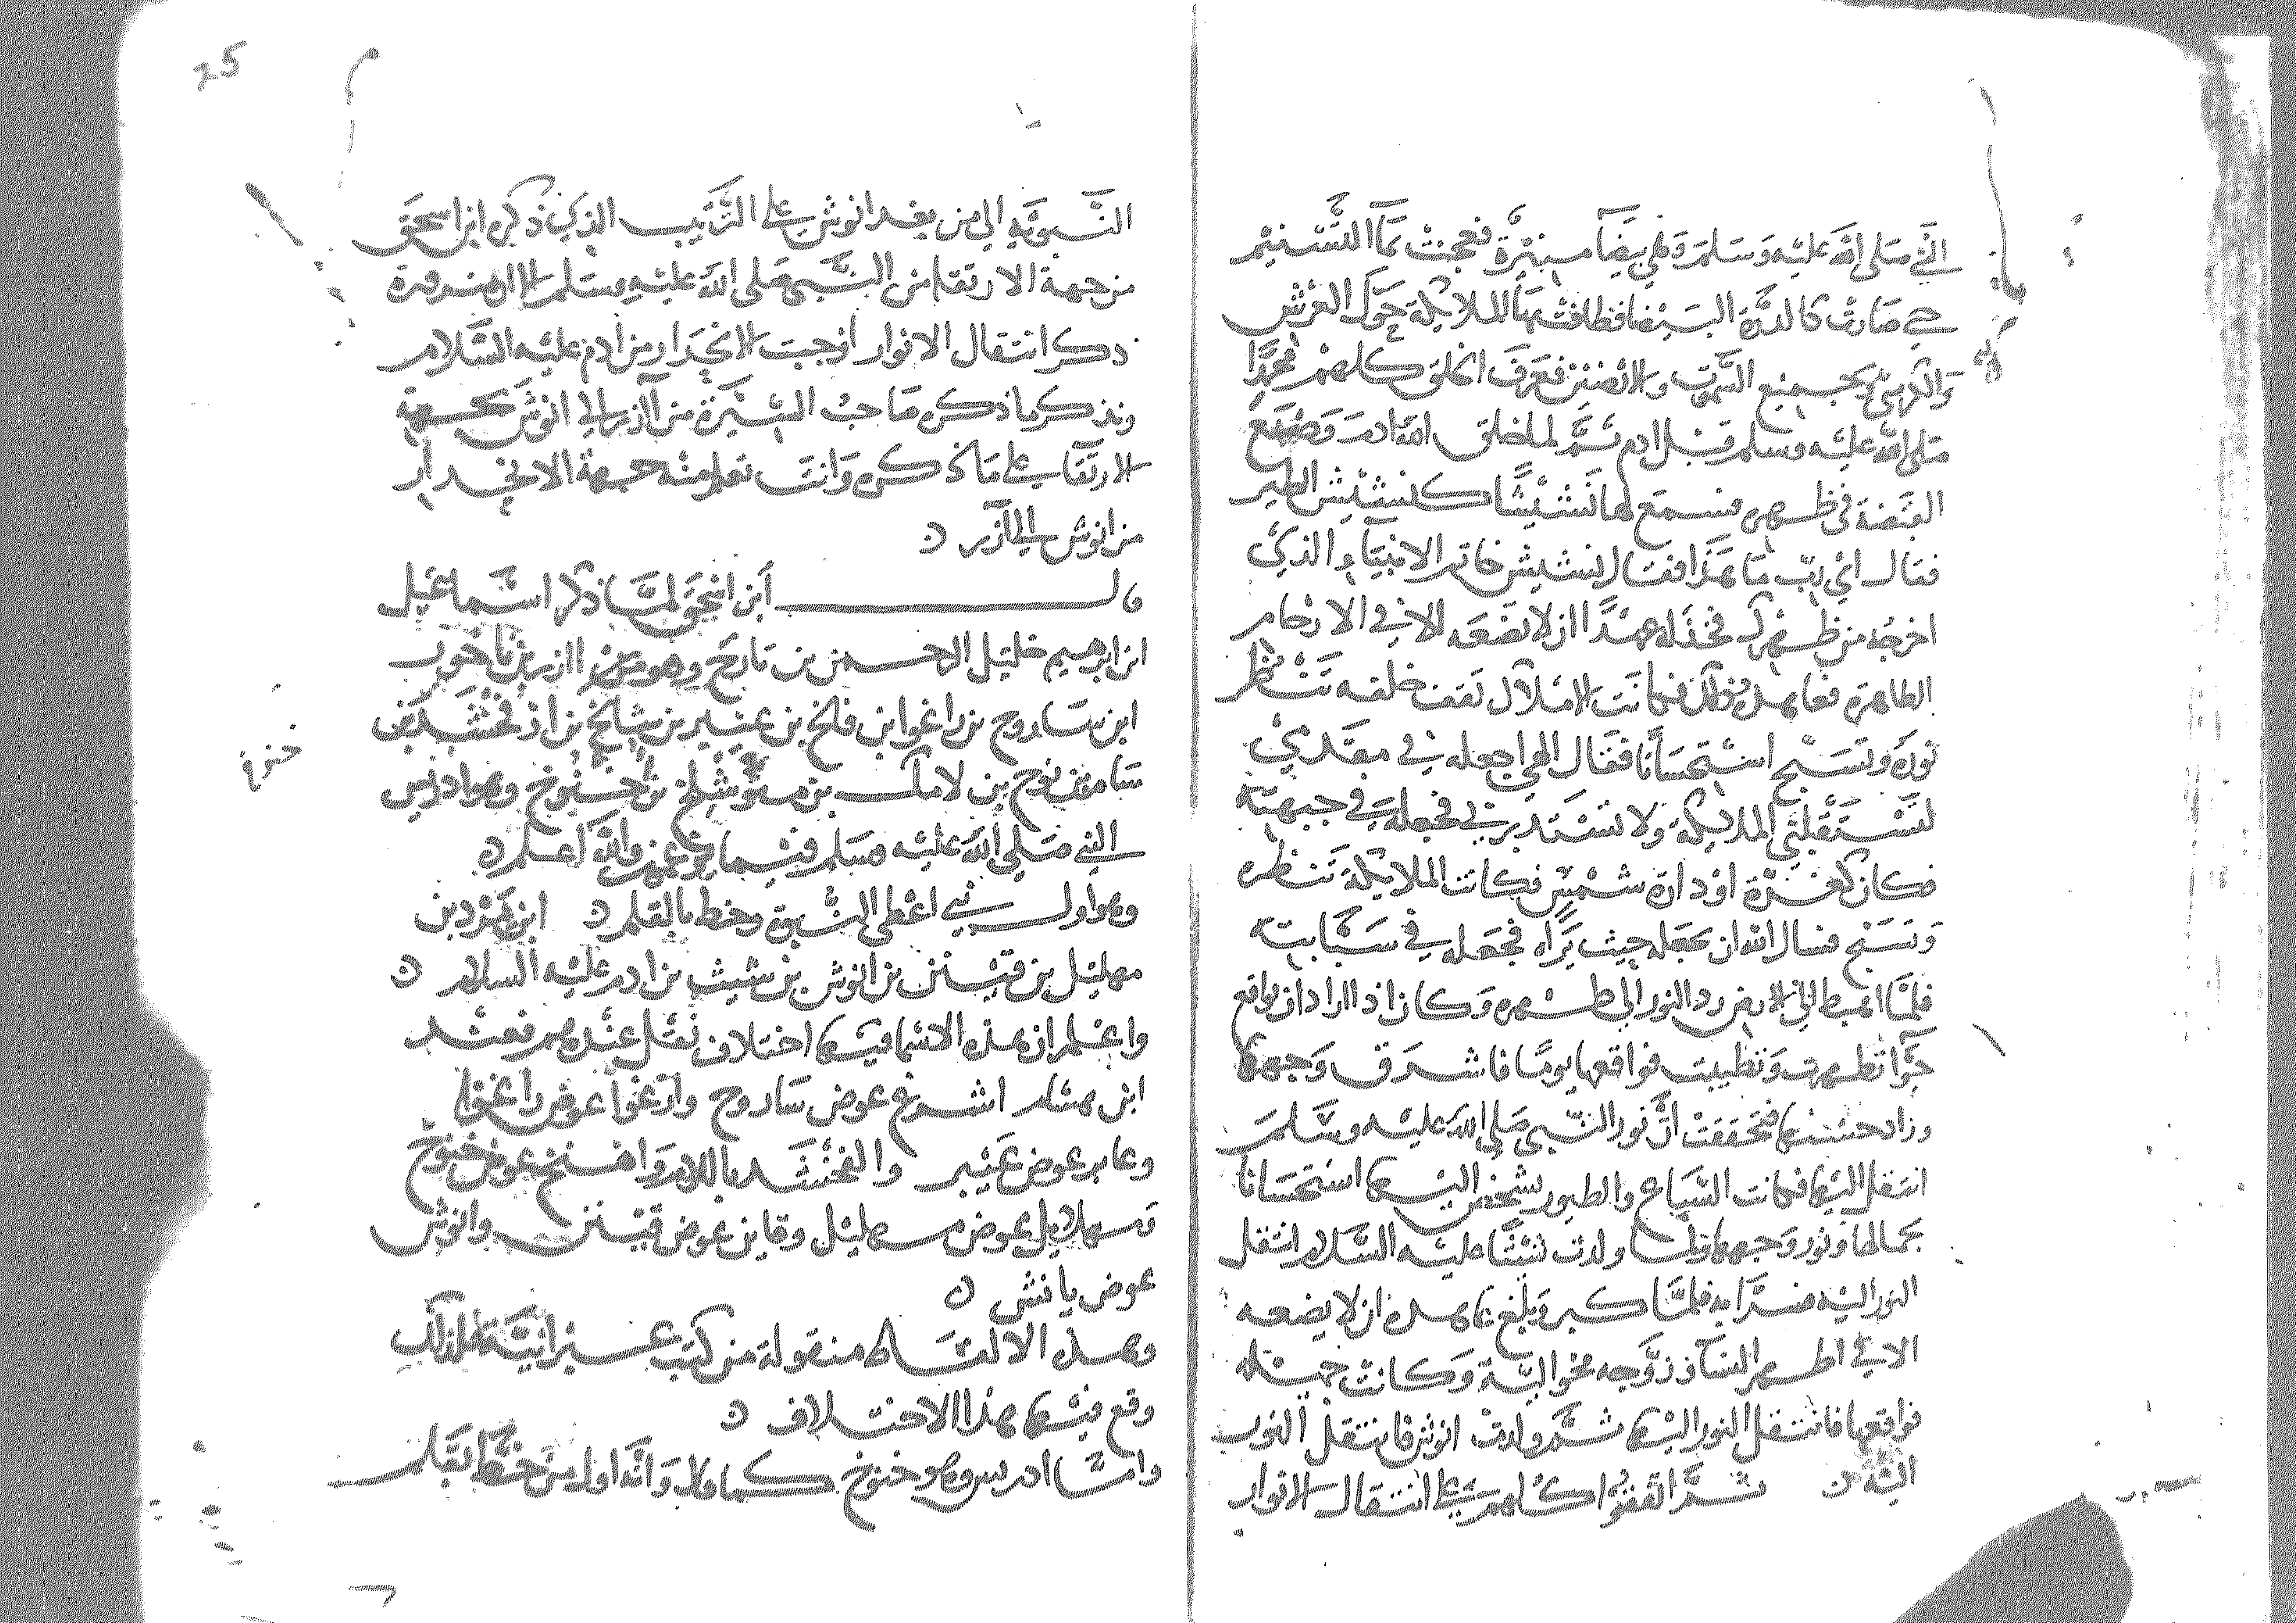 النبي صلى الله عليه وسلم وهي بيضآ منيرة فعجنت بمآ التسنيم
حتى صارت كالدرة البيضا فطافت بها الملايكة حول العرش
والكرسي وبجميع السموت والارضين فعرف الخلق كلهم محمدا
صلى الله عليه وسلم قبل ادم ثم لما خلق الله ادم وضع
القبضة في ظهره فسمع لها نشيشا كنشيش الطير
فقال اي رب ما هذا فقال نشيش خاتم الانبيآ الذي
اخرجه من ظهرك فخذله عهدا ان لا تضعه الا في الارحام
الطاهرة فعاهد ذلك فكانت الاملاك تقف خلفه تنظر
نوره وتسبح استحسانا فقال الهي اجعله في مقدمي
لتستقبلني الملايكة ولا تستدبرني فجعله في جبهته
فكان كغرة او دارة شمس فكانت الملايكة تنظره
وتسبح فسال الله ان يجعله حيث يراه فجعله في سبابته
فلما اهبط الى الارض رد النور الى ظهره وكان اذا اراد ان يواقع
حوآ تطهرت وتطيبت فواقعها يوما فاشرق وجهها
وزاد حسنها فتحققت ان نور النبي صلى الله عليه وسلم
انتقل اليها فكانت السباع والطيور تشخص اليها استحسانا
بجمالها ونور وجهها ولما ولدت شيثا عليه السلام انتقل
النور اليه فسرا به فلما كبر وبلغ عاهده ان لا يضعه
الا في اطهر النسآ وزوجه مخوالية وكانت جميله
فواقعها فانتقل النور اليها ثم ولدت انوش فانتقل النور
اليه ثم اتفقوا كلهم على انتقال الانوار
25
النبويه الى من بعد انوش على الترتيب الذي ذكره ابن اسحق
من جهة الارتقا من النبي صلى الله عليه وسلم الا ان
ذكر انتقال الانوار اوجبت الانحدار من ادم عليه السلام
ونذكر ما ذكره صاحب السيرة من آزر الى انوش بجهة
الارتقا على ما ذكره وانت تعلم منه جهة الانحدار
من انوش الى آزر
قال ابن اسحق لما ذكر اسماعيل
ابن ابرهيم خليل الرحمن بن تارح وهو ازر بن ناحور
ابن ساروح بن راغوا بن فلخ بن عيبر بن شالخ بن ارفخشد بن
سام بن نوح بن لامك بن متوشلخ بن خنوخ وهو ادريس
خنوخ
النبي صلى الله عليه وسلم فيما يزعمون والله اعلم
وهو اول نبي اعطى النبوة وخط بالقلم ابن يرد بن
مهليل بن قينن بن انوش بن شيث بن ادم عليه السلام
واعلم ان هذه الاسما فيها اختلاف نقل عندهم فعند
ابن هشام اشرغ عوض ساروح وارغوا عوض راغوا
وعابر عوض عيبر والفخشد باللام واهنخ عوض خنوخ
ومهلايل عوض مهليل وقاين عوض قينن وانوش
عوض يانش
وهذه الالفاظ منقولة من كتب عبرانية فلذلك
وقع فيها هذا الاختلاف
واما ادريس وهو خنوخ كما قال وانه اول من خط بقلم